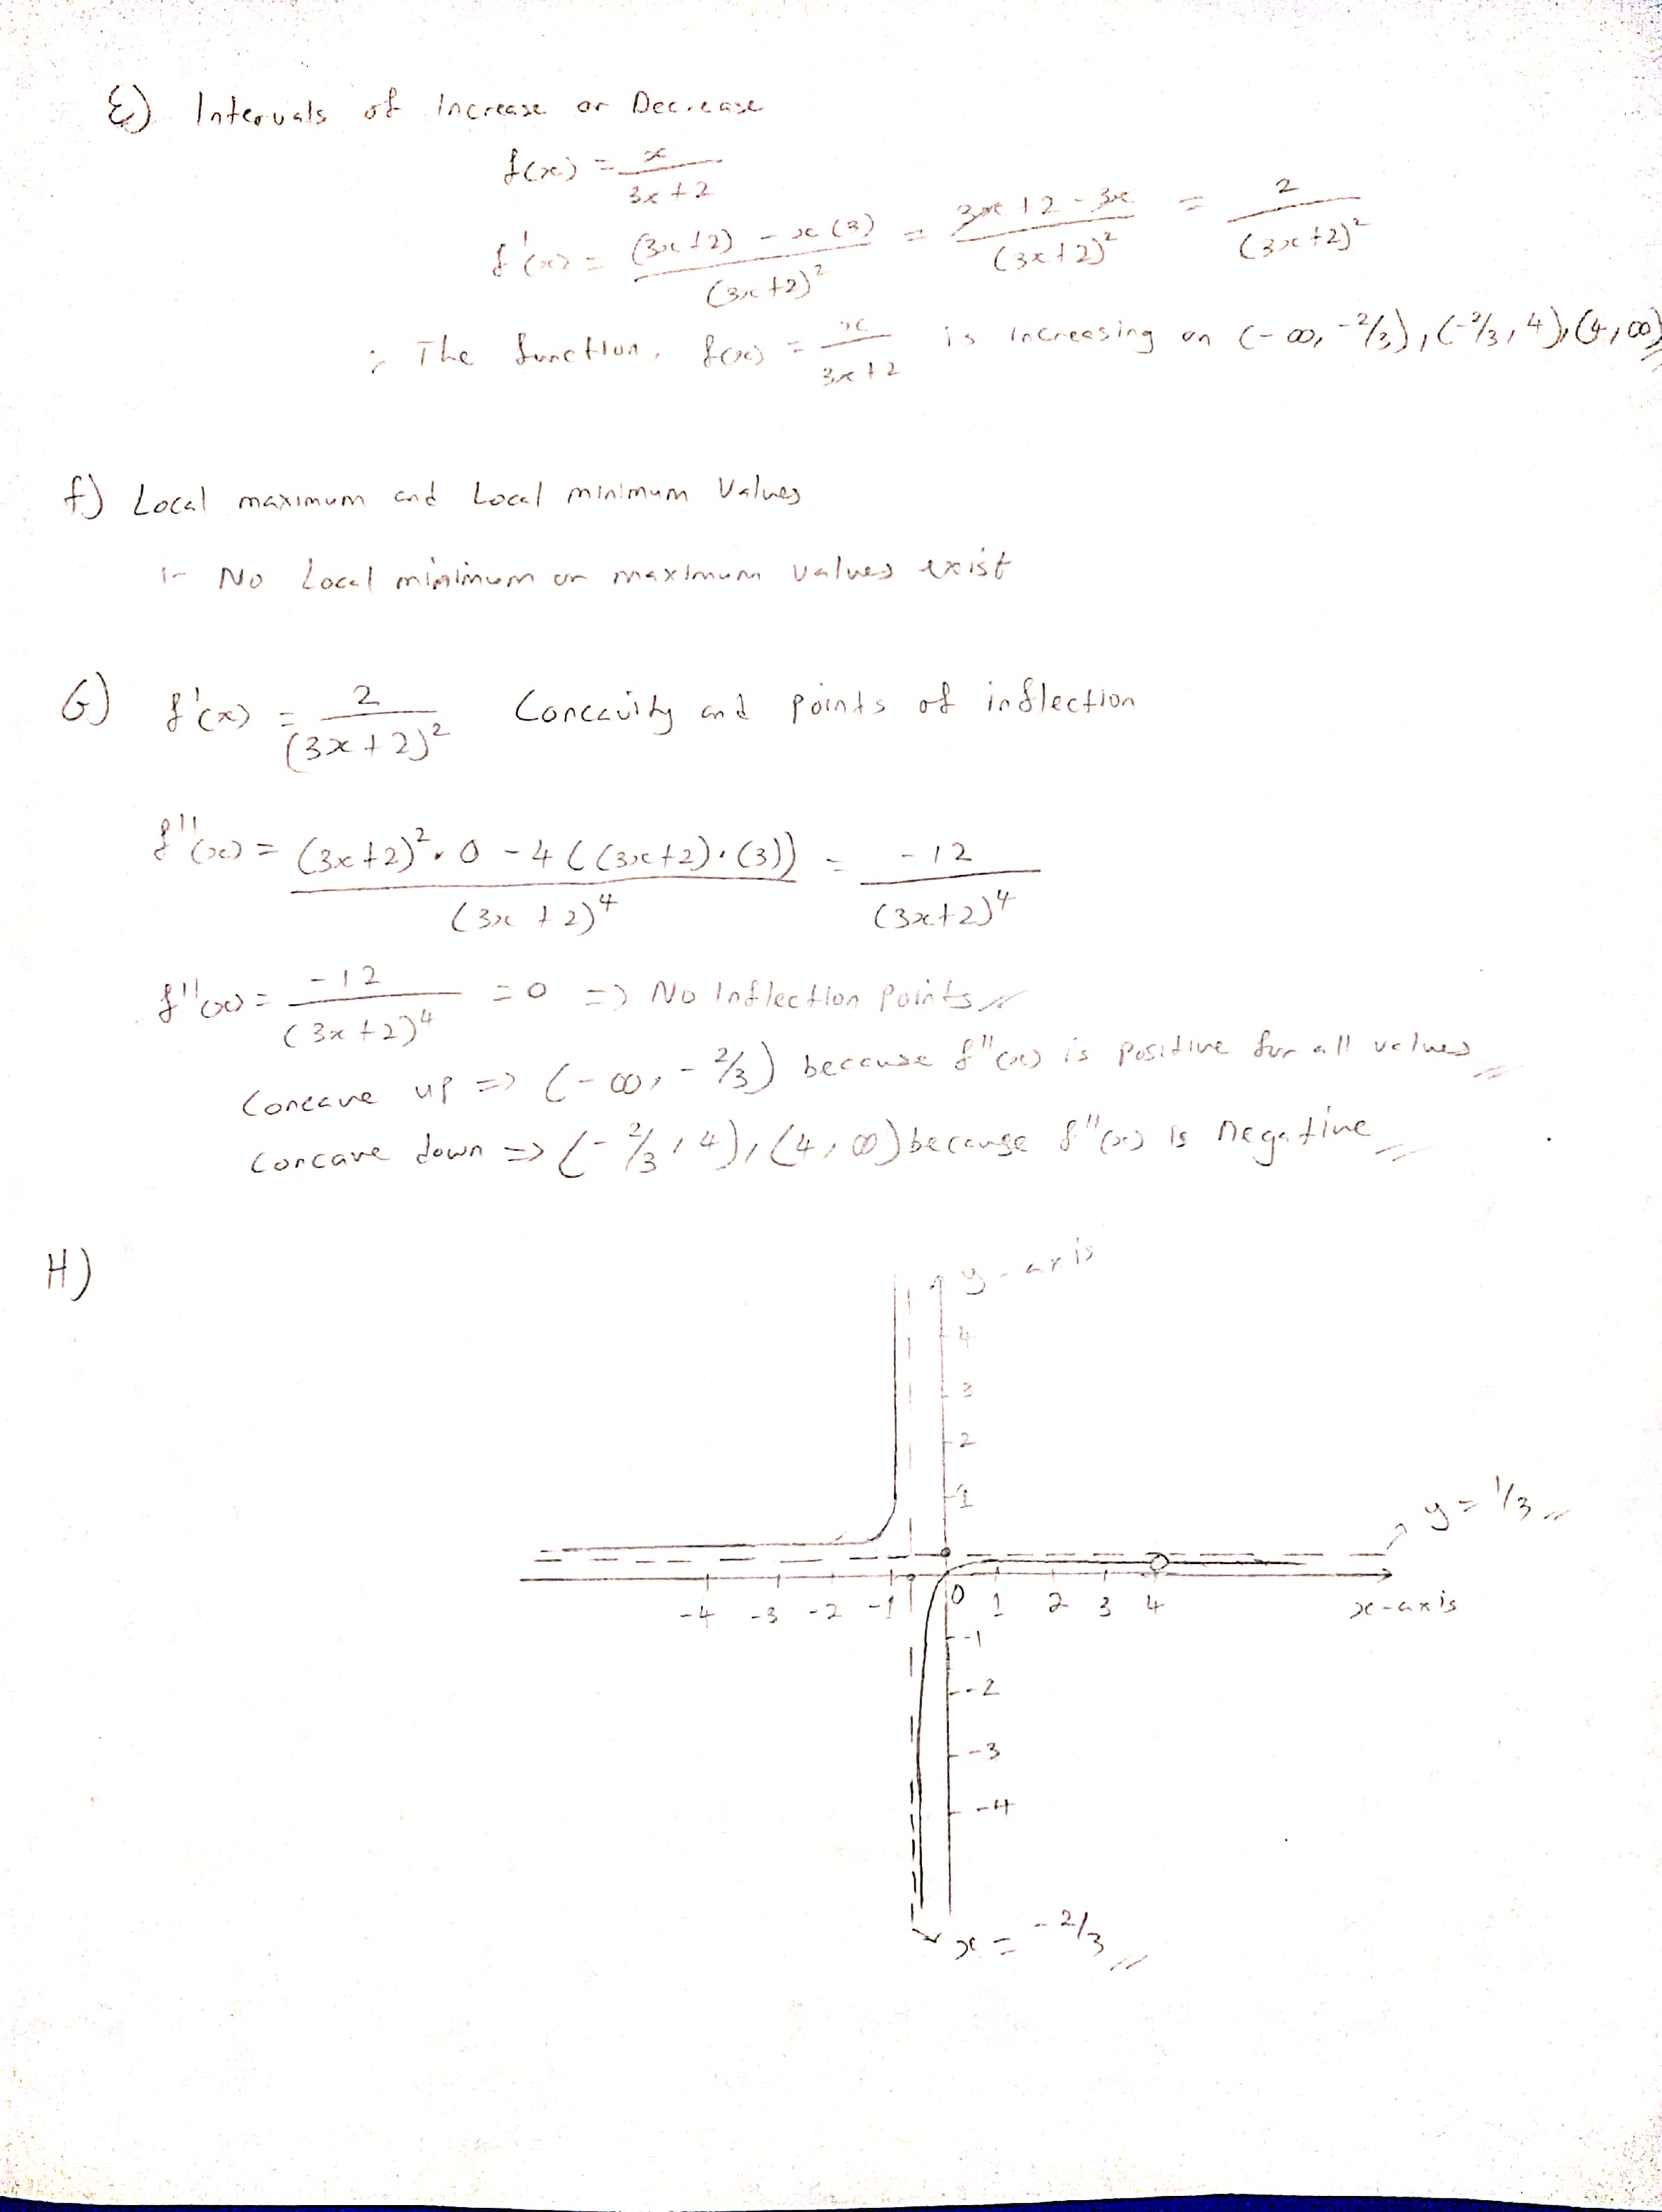 E) Intervals of Increase or Decrease
f(x) = x / 3x+2
f'(x) = (3x+2) - x(3) / (3x+2)² = 3x+2-3x / (3x+2)² = 2 / (3x+2)²
∴ The function, f(x) = x / 3x+2 is increasing on (-∞, -2/3), (-2/3, 4), (4, ∞)
f) Local maximum and Local minimum Values
:- No Local minimum or maximum values exist
G) f'(x) = 2 / (3x+2)² Concavity and points of inflection
f''(x) = (3x+2)²·0 - 4((3x+2)·(3)) / (3x+2)⁴ = -12 / (3x+2)⁴
f''(x) = -12 / (3x+2)⁴ = 0 => No Inflection Points
Concave up => (-∞, -2/3) because f''(x) is positive for all values
Concave down => (-2/3, 4), (4, ∞) because f''(x) is negative
H)
y-axis
4
3
2
1
y = 1/3
-4 -3 -2 -1 0 1 2 3 4 x-axis
-1
-2
-3
-4
x = -2/3